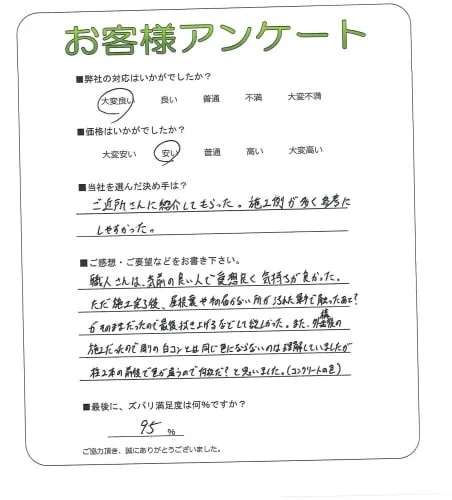 お客様アンケート
■弊社の対応はいかがでしたか?
大変良い 良い 普通 不満 大変不満
■価格はいかがでしたか?
大変安い 安い 普通 高い 大変高い
■当社を選んだ決め手は?
ご近所さんに紹介してもらった。施工例が多く参考に
しやすかった。
■ご感想・ご要望などをお書き下さい。
職人さんは、気前の良い人で愛想良く気持ちが良かった。
ただ施工完了後、屋根裏やその白かない所が汚れた軍手で触ったあと?
がそのままだったので最後拭き上げるなどして欲しかった。また、外構後の
施工だったので周りの白コンとは同じ色にならないのは理解していましたが
柱2本の前後で色が違うので何故だ?と思いました。(コンクリートの色)
■最後に、ズバリ満足度は何%ですか?
95 %
ご協力頂き、誠にありがとうございました。